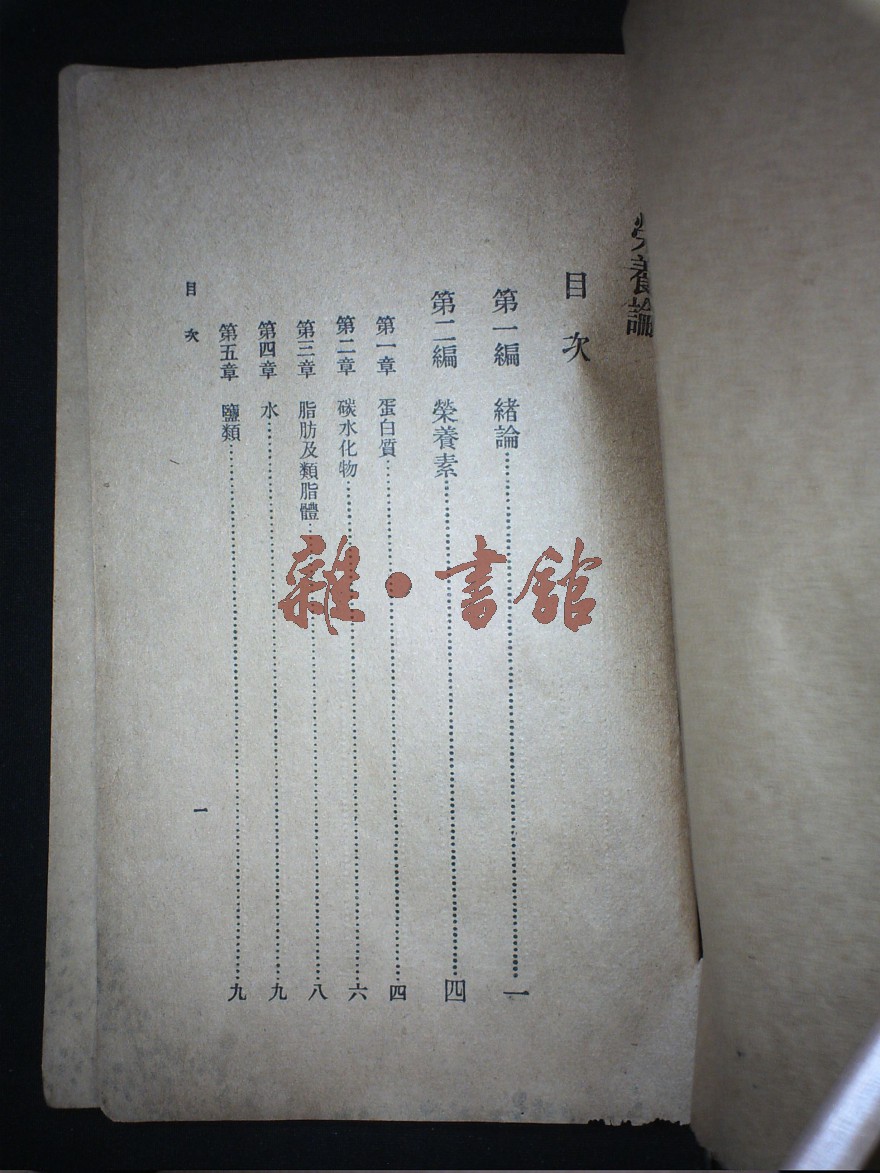 榮養論
目次
第一編　緒論……一
第二編　榮養素……四
第一章　蛋白質……四
第二章　碳水化物……六
第三章　脂肪及類脂體……八
第四章　水……九
第五章　鹽類……九
目次　一
雜·書館